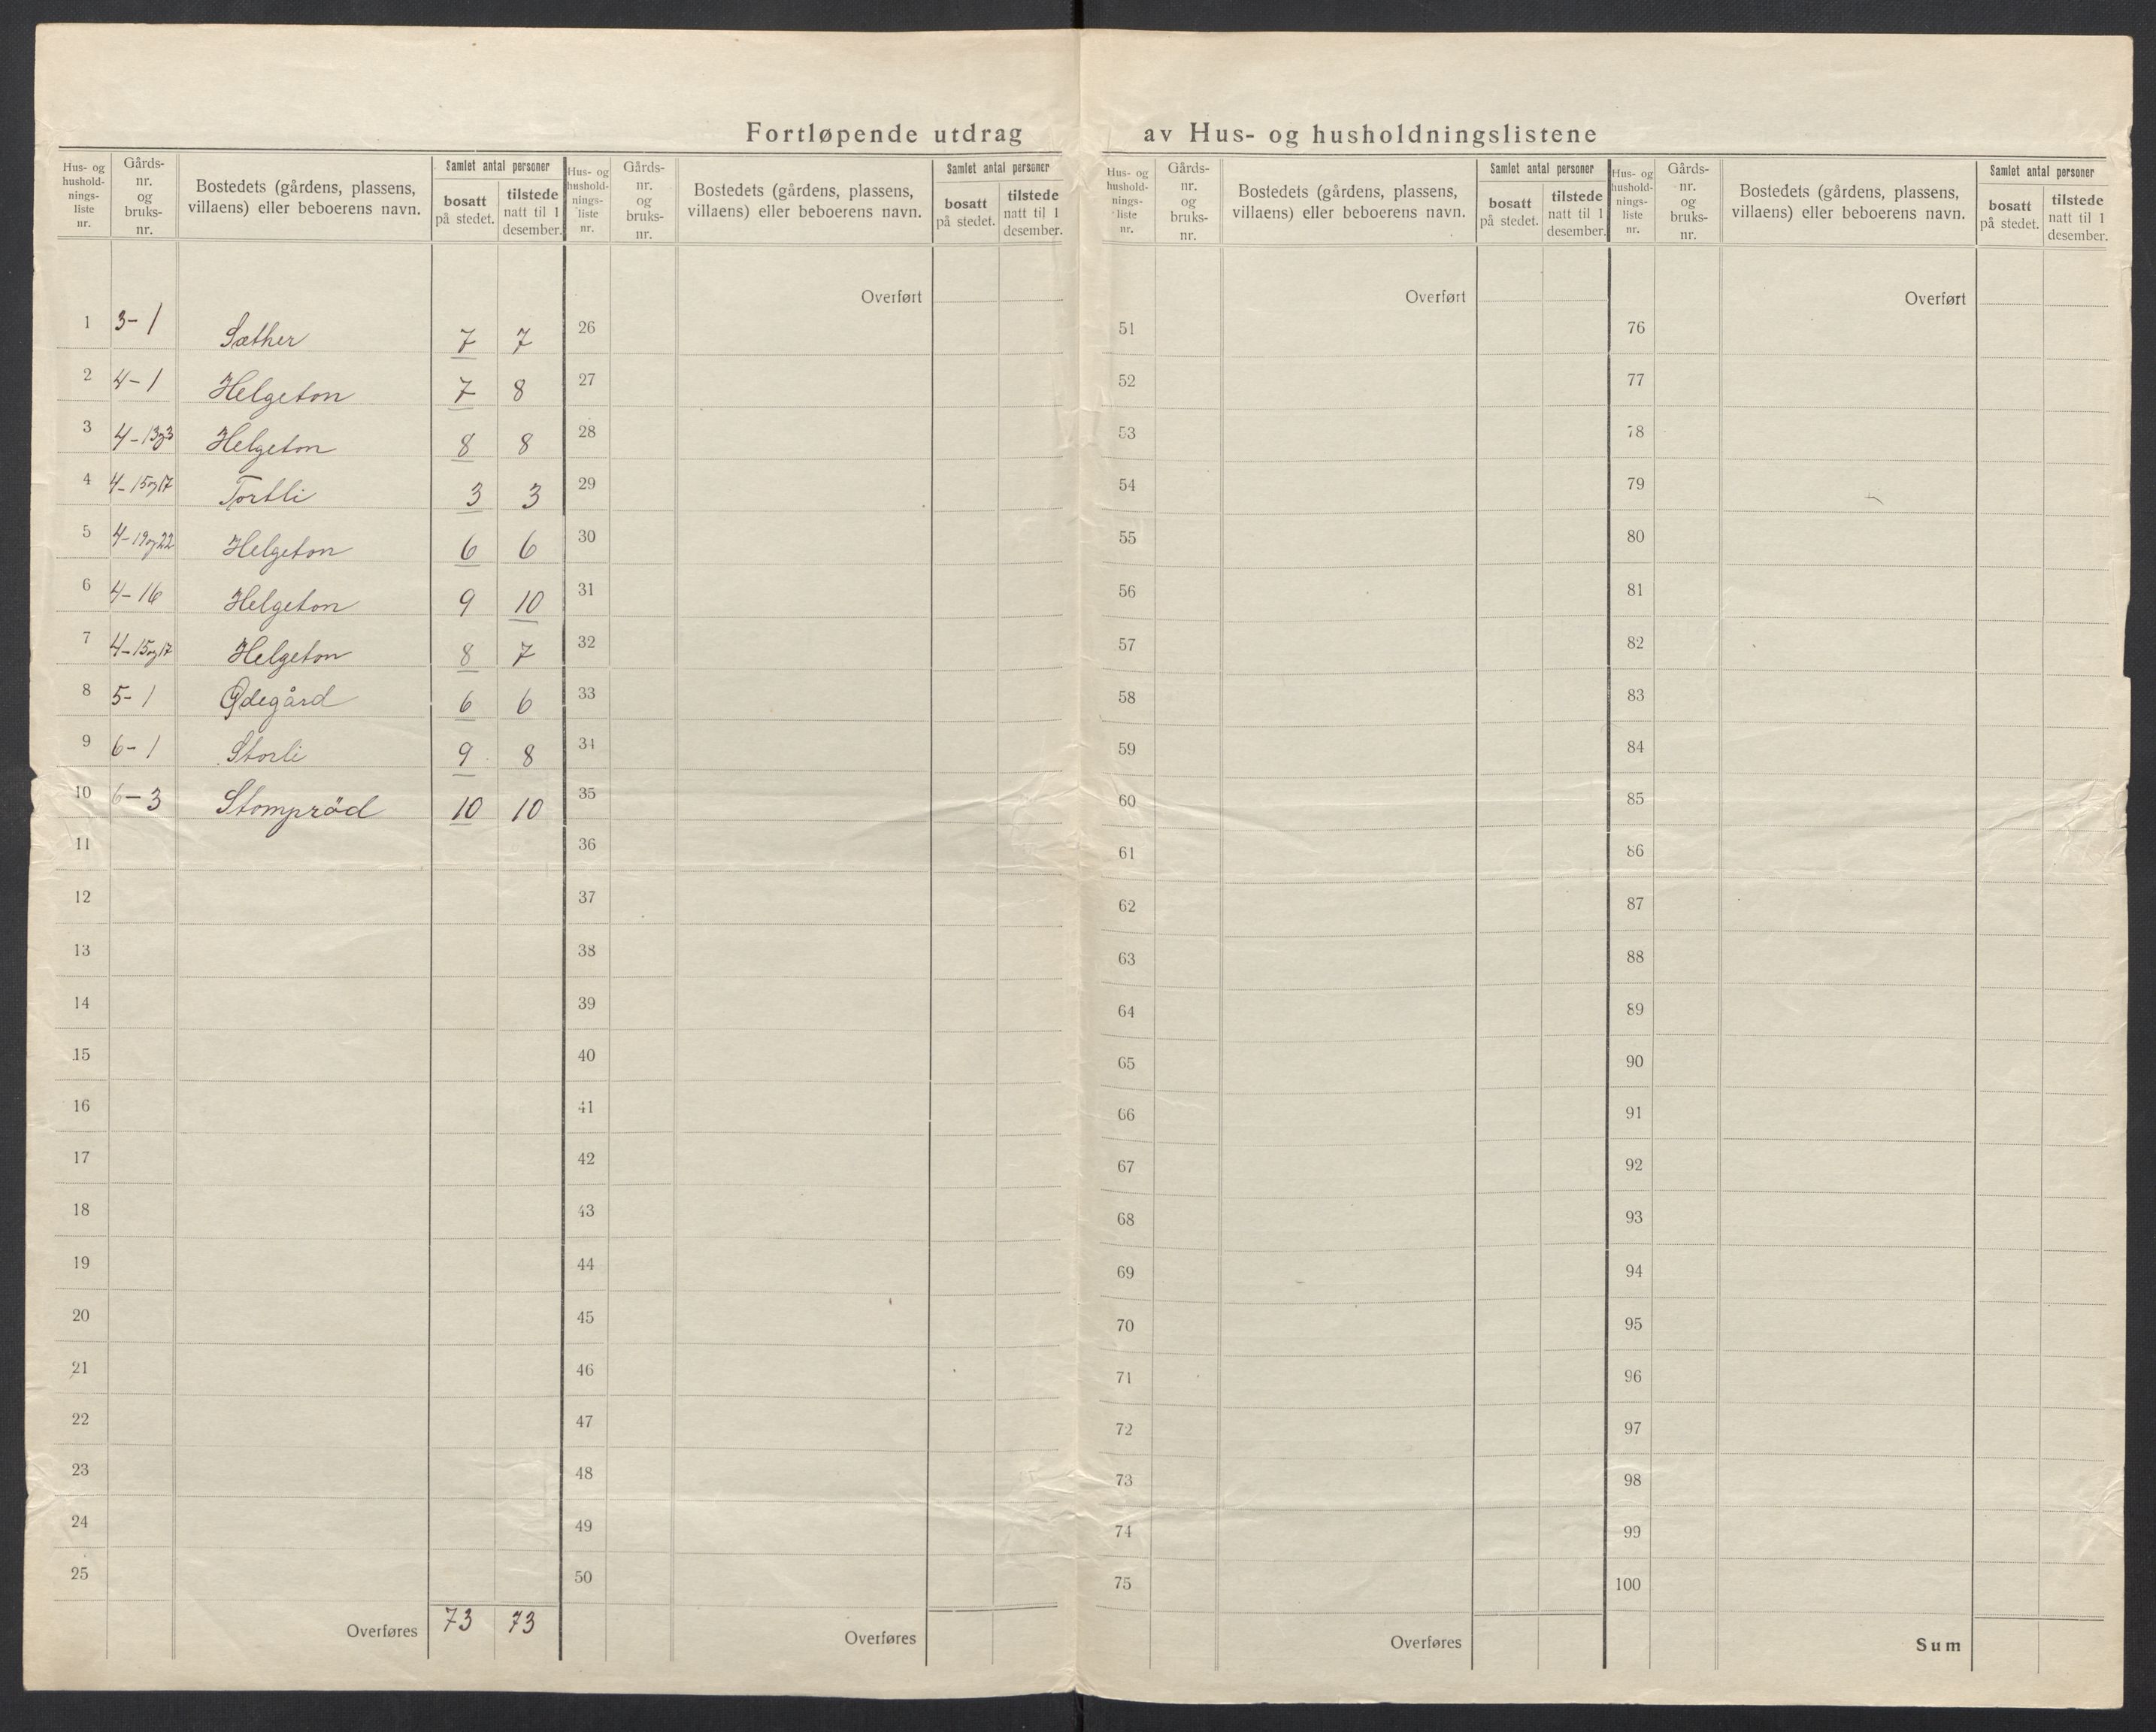 Fortløpende utdrag av Hus- og husholdningslistene
Hus- og hushold- nings- liste nr. | Gårds- nr. og bruks- nr. | Bostedets (gårdens, plassens, villaens) eller beboerens navn. | Samlet antal personer | bosatt på stedet. | tilstede natt til 1 desember.
Hus- og hushold- nings- liste nr. | Gårds- nr. og bruks- nr. | Bostedets (gårdens, plassens, villaens) eller beboerens navn. | Samlet antal personer | bosatt på stedet. | tilstede natt til 1 desember.
Hus- og hushold- nings- liste nr. | Gårds- nr. og bruks- nr. | Bostedets (gårdens, plassens, villaens) eller beboerens navn. | Samlet antal personer | bosatt på stedet. | tilstede natt til 1 desember.
Hus- og hushold- nings- liste nr. | Gårds- nr. og bruks- nr. | Bostedets (gårdens, plassens, villaens) eller beboerens navn. | Samlet antal personer | bosatt på stedet. | tilstede natt til 1 desember.
Overført Overført Overført
1 3-1 Sæther 7 7 26 51 76
2 4-1 Helgeton 7 8 27 52 77
3 4-13og3 Helgeton 8 8 28 53 78
4 4-15og17 Tortli 3 3 29 54 79
5 4-19og22 Helgeton 6 6 30 55 80
6 4-16 Helgeton 9 10 31 56 81
7 4-15og17 Helgeton 8 7 32 57 82
8 5-1 Ødegård 6 6 33 58 83
9 6-1 Storli 9 8 34 59 84
10 6-3 Stomprød 10 10 35 60 85
11 36 61 86
12 37 62 87
13 38 63 88
14 39 64 89
15 40 65 90
16 41 66 91
17 42 67 92
18 43 68 93
19 44 69 94
20 45 70 95
21 46 71 96
22 47 72 97
23 48 73 98
24 49 74 99
25 50 75 100
Overføres 73 73 Overføres Overføres Sum